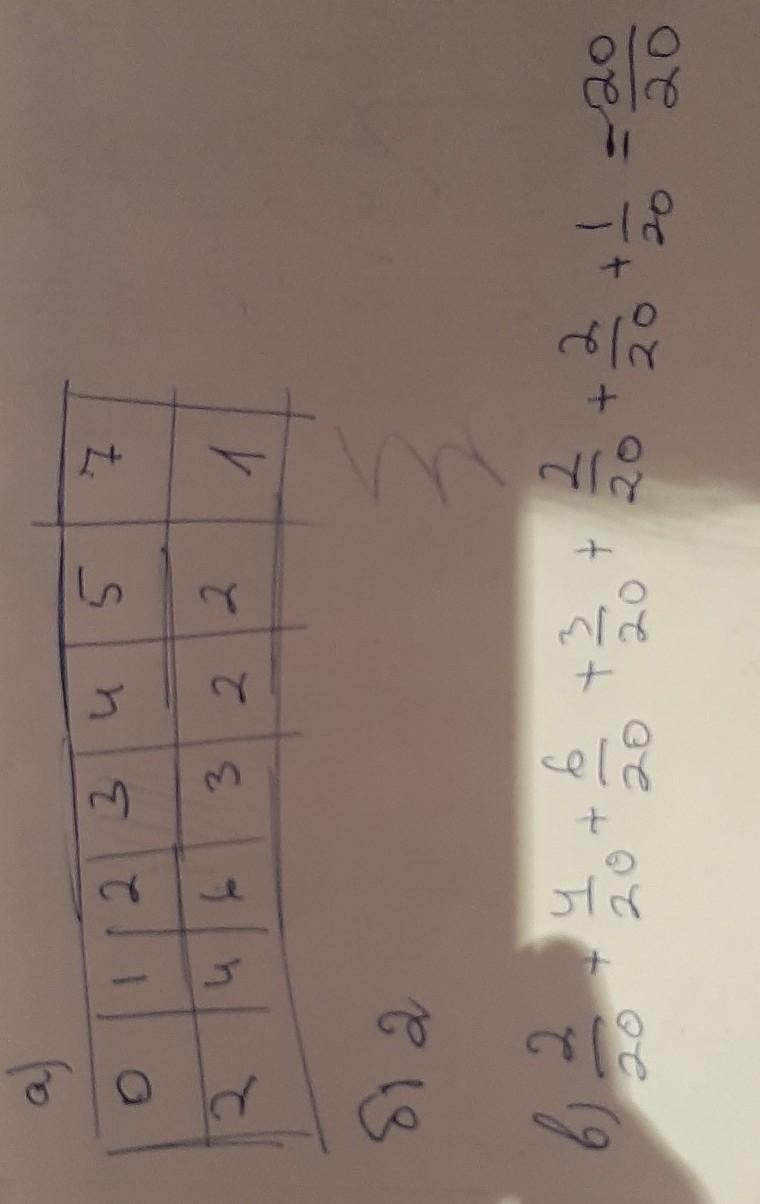 а)
0 1 2 3 4 5 7
2 4 6 3 2 2 1
б) 2
в) 2/20 + 4/20 + 6/20 + 3/20 + 2/20 + 2/20 + 1/20 = 20/20